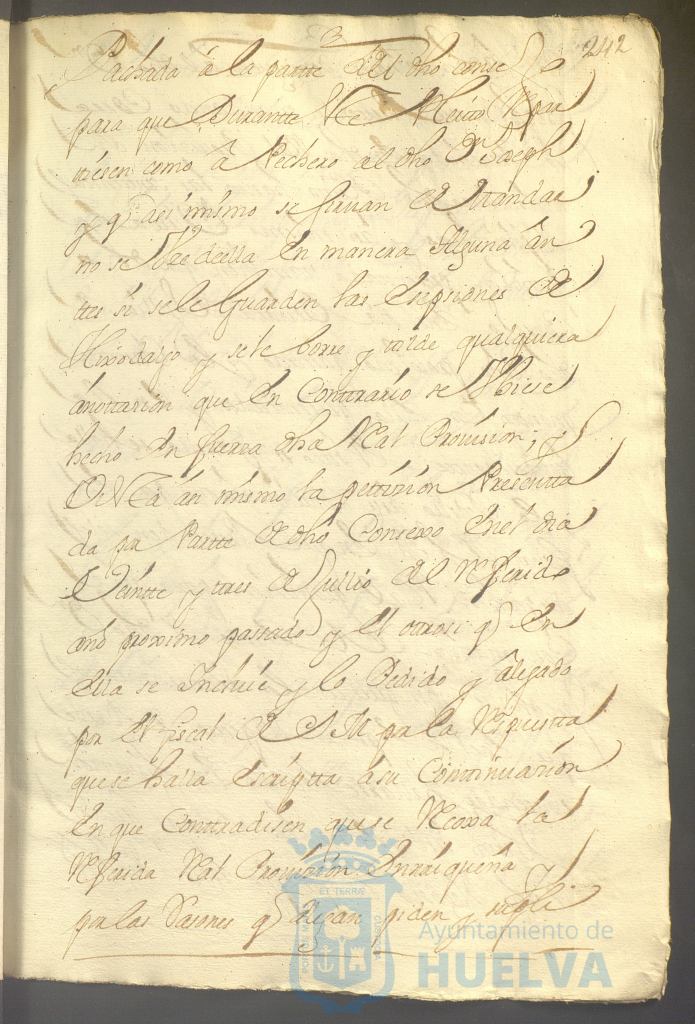 3
242
Pachada â la partte del dho conse
para que Durantte
tiesen como â Pechero âl dho Dn Joseph
y q asi mismo se sirvan de Mandar
no se Vse de ella En manera Alguna ân
ttes si se le Guarden las Esepsiones de
Hixodalgo y se le borre y tilde qualquiera
ânottasion que En Conttrario se Vbiese
hecho En fuerza dha Real Provision; y
Vistta âsi mismo la pettizion Presentta
da por Partte de dho Consexo En el dia
Veintte y tres de Jullio del Referido
año proximo passado y el ottrosi q En
Ella se Incluie y lo Pedido y âlegado
por El fiscal de S M por la Respuestta
que se halla Escriptta â su Conttinuazion
En que Conttradisen que se Recoxa la
Referida Real Provision Enrriqueña y
por las Rasones q Alegan piden y supli
Ayuntamiento de
HUELVA